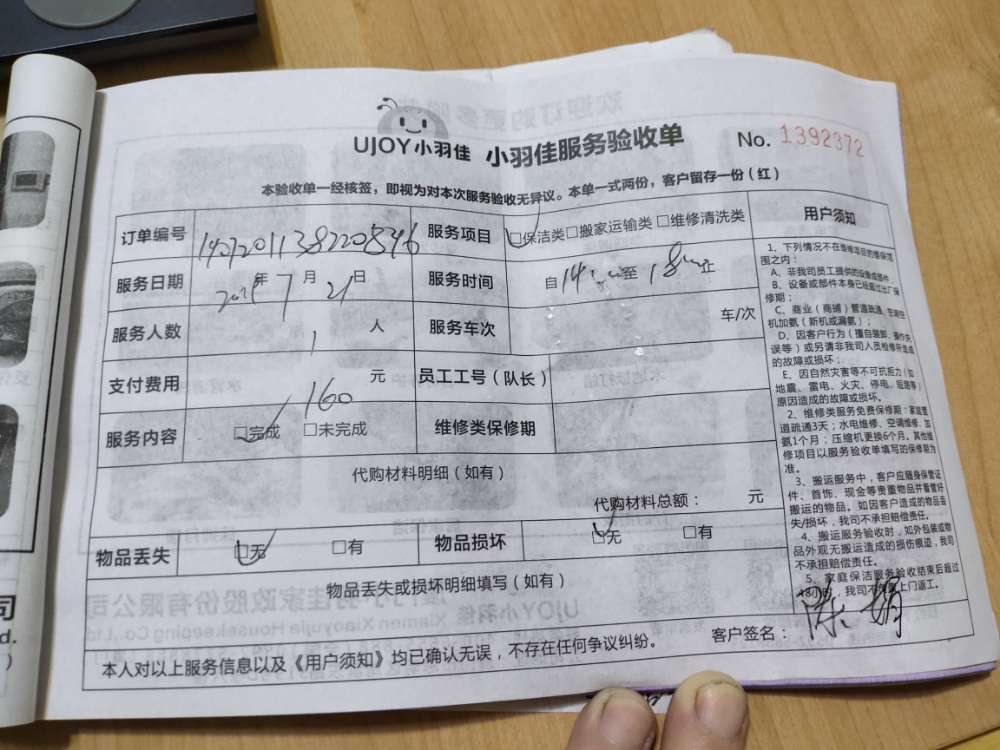 UJOY小羽佳 小羽佳服务验收单 No. 1392372
本验收单一经核签，即视为对本次服务验收无异议。本单一式两份，客户留存一份（红）
订单编号 服务项目 □保洁类□搬家运输类□维修清洗类
服务日期 年 7 月 21 日 服务时间 自 14:00 至 18:00 止
服务人数 1 人 服务车次 车/次
支付费用 160 元 员工工号（队长）
服务内容 □完成 □未完成 维修类保修期
代购材料明细（如有）
代购材料总额： 元
物品丢失 □无 □有 物品损坏 □无 □有
物品丢失或损坏明细填写（如有）
客户签名：
本人对以上服务信息以及《用户须知》均已确认无误，不存在任何争议纠纷。
用户须知
1、下列情况不在维修项目的维保范
围之内：
A、非我司员工提供的设备或部件；
B、设备或部件本身已经超过出厂保
修期；
C、商业（商铺）管道疏通、空调空
机加氨（新机或漏氨）；
D、因客户行为（擅自装卸、操作失
误等）或另请非我司人员检修所造成
的故障或损坏；
E、因自然灾害等不可抗拒力（如
地震、雷电、火灾、停电、短路等）
原因造成的故障或损坏。
2、维修类服务免费保修期：家庭管
道疏通3天；水电维修、空调维修、加
氨1个月；压缩机更换6个月。其他维
修项目以服务验收单填写的保修期为
准。
3、搬运服务中，客户应随身保管证
件、首饰、现金等贵重物品并看管好
搬运的物品。如因客户造成的物品丢
失/损坏，我司不承担赔偿责任。
4、搬运服务验收时，如外包装或物
品外观无搬运造成的损伤痕迹，我司
不承担赔偿责任。
5、家庭保洁服务验收结束后超过
上门返工。